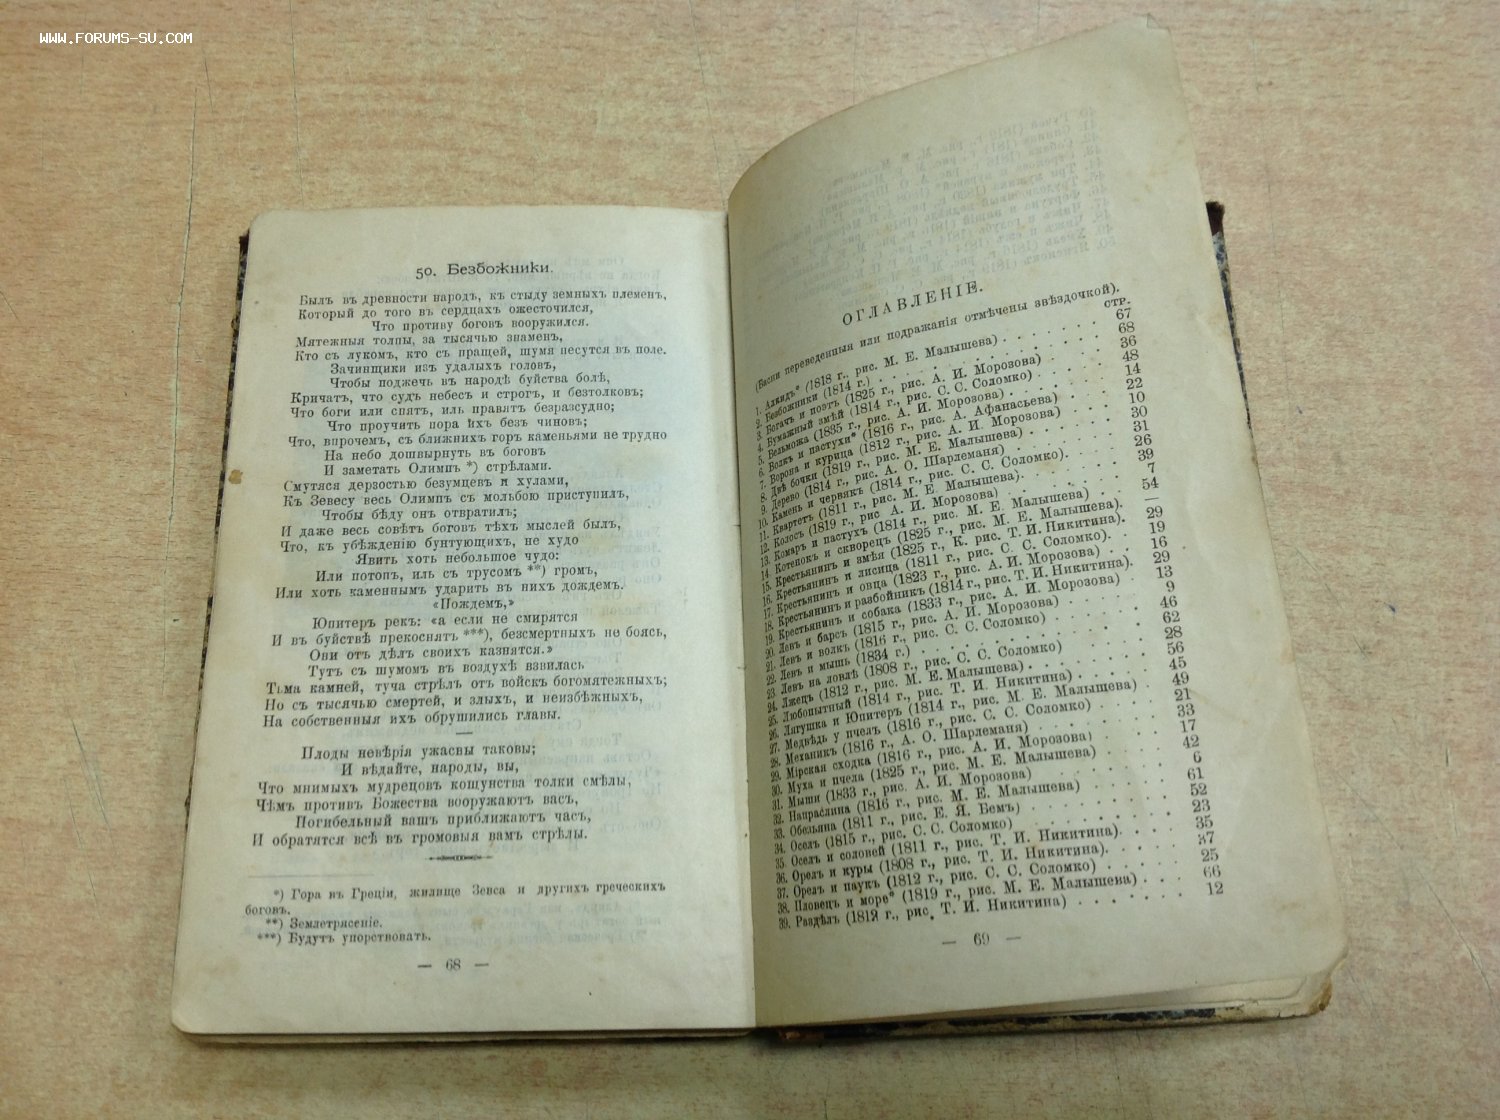 WWW.FORUMS-SU.COM
50. Безбожники.
Былъ въ древности народъ, къ стыду земныхъ племенъ,
Который до того въ сердцахъ ожесточился,
Что противу боговъ вооружился.
Мятежныя толпы, за тысячью знаменъ,
Кто съ лукомъ, кто съ пращей, шумя несутся въ поле.
Зачинщики изъ удалыхъ головъ,
Чтобы поджечь въ народѣ буйства болѣ,
Кричатъ, что судъ небесъ и строгъ, и безтолковъ;
Что боги или спятъ, иль правятъ безразсудно;
Что проучить пора ихъ безъ чиновъ;
Что, впрочемъ, съ ближнихъ горъ каменьями не трудно
На небо дошвырнуть въ боговъ
И заметать Олимпъ *) стрѣлами.
Смутяся дерзостью безумцевъ и хулами,
Къ Зевесу весь Олимпъ съ мольбою приступилъ,
Чтобы бѣду онъ отвратилъ;
И даже весь совѣтъ боговъ тѣхъ мыслей былъ,
Что, къ убѣжденію бунтующихъ, не худо
Явить хоть небольшое чудо:
Или потопъ, иль съ трусомъ **) громъ,
Или хоть каменнымъ ударить въ нихъ дождемъ.
«Пождемъ,»
Юпитеръ рекъ: «а если не смирятся
И въ буйствѣ прекоснятъ ***), безсмертныхъ не боясь,
Они отъ дѣлъ своихъ казнятся.»
Тутъ съ шумомъ въ воздухѣ взвилась
Тьма камней, туча стрѣлъ отъ войскъ богомятежныхъ;
Но съ тысячью смертей, и злыхъ, и неизбѣжныхъ,
На собственныя ихъ обрушились главы.
Плоды невѣрія ужасны таковы;
И вѣдайте, народы, вы,
Что мнимыхъ мудрецовъ кощунства толки смѣлы,
Чѣмъ противъ Божества вооружаютъ васъ,
Погибельный вашъ приближаютъ часъ,
И обратятся всѣ въ громовыя вамъ стрѣлы.
*) Гора въ Греціи, жилище Зевса и другихъ греческихъ
боговъ.
**) Землетрясеніе.
***) Будутъ упорствовать.
— 68 —
ОГЛАВЛЕНІЕ.
(Басни переведенныя или подражанія отмѣчены звѣздочкой).
СТР.
1. Алкидъ* (1818 г., рис. М. Е. Малышева) . . . . . . 67
2. Безбожники (1814 г.) . . . . . . . . 68
3. Богачъ и поэтъ (1825 г., рис. А. И. Морозова) . . . 36
4. Бумажный змѣй (1814 г., рис. С. С. Соломко) . . . . 48
5. Вельможа (1835 г., рис. А. И. Морозова) . . . . 14
6. Волкъ и пастухи* (1816 г., рис. А. Афанасьева) . . . 22
7. Ворона и курица (1812 г., рис. А. И. Морозова) . . . 10
8. Двѣ бочки (1819 г., рис. М. Е. Малышева) . . . . 30
9. Дерево (1814 г., рис. А. О. Шарлеманя) . . . . 31
10. Камень и червякъ (1814 г., рис. С. С. Соломко). . . . 26
11. Квартетъ (1811 г., рис. М. Е. Малышева). . . . . 39
12. Колосъ (1819 г., рис А. И. Морозова) . . . . . 7
13. Комаръ и пастухъ (1814 г., рис. М. Е. Малышева) . . . 54
14. Котенокъ и скворецъ (1825 г., рис. М. Е. Малышева). —
15. Крестьянинъ и змѣя (1825 г., К. рис. Т. И. Никитина). 29
16. Крестьянинъ и лисица (1811 г., рис. С. С. Соломко). . 19
17. Крестьянинъ и овца (1823 г., рис. А. И. Морозова) . . 16
18. Крестьянинъ и разбойникъ (1814 г., рис. Т. И. Никитина). 29
19. Крестьянинъ и собака (1833 г., рис. А. И. Морозова) . 13
20. Левъ и барсъ (1815 г., рис. А. И. Морозова) . . . . 9
21. Левъ и волкъ (1816 г., рис. С. С. Соломко) . . . . 46
22. Левъ и мышь (1834 г.) . . . . . . . . 62
23. Левъ на ловлѣ (1808 г., рис. С. С. Соломко) . . . . 28
24. Лжецъ (1812 г., рис. М. Е. Малышева) . . . . . 56
25. Любопытный (1814 г., рис. Т. И. Никитина) . . . . 45
26. Лягушка и Юпитеръ (1814 г., рис. М. Е. Малышева) . 49
27. Медвѣдь у пчелъ (1816 г., рис. С. С. Соломко) . . . 21
28. Механикъ (1816 г., А. О. Шарлеманя) . . . . . 33
29. Мірская сходка (1816 г., рис. А. И. Морозова) . . . 17
30. Муха и пчела (1825 г., рис. М. Е. Малышева) . . . 42
31. Мыши (1833 г., рис. А. И. Морозова) . . . . . 6
32. Напраслина (1816 г., рис. М. Е. Малышева) . . . . 61
33. Обезьяна (1811 г., рис. Е. Я. Бемъ) . . . . . 52
34. Оселъ (1815 г., рис. С. С. Соломко) . . . . . 23
35. Оселъ и соловей (1811 г., рис. Т. И. Никитина). . . . 35
36. Орелъ и куры (1808 г., рис. Т. И. Никитина). . . . . 37
37. Орелъ и паукъ (1812 г., рис. С. С. Соломко) . . . . 25
38. Пловецъ и море* (1819 г., рис. М. Е. Малышева) . . . 66
39. Раздѣлъ (1812 г., рис. Т. И. Никитина) . . . . . 12
— 69 —